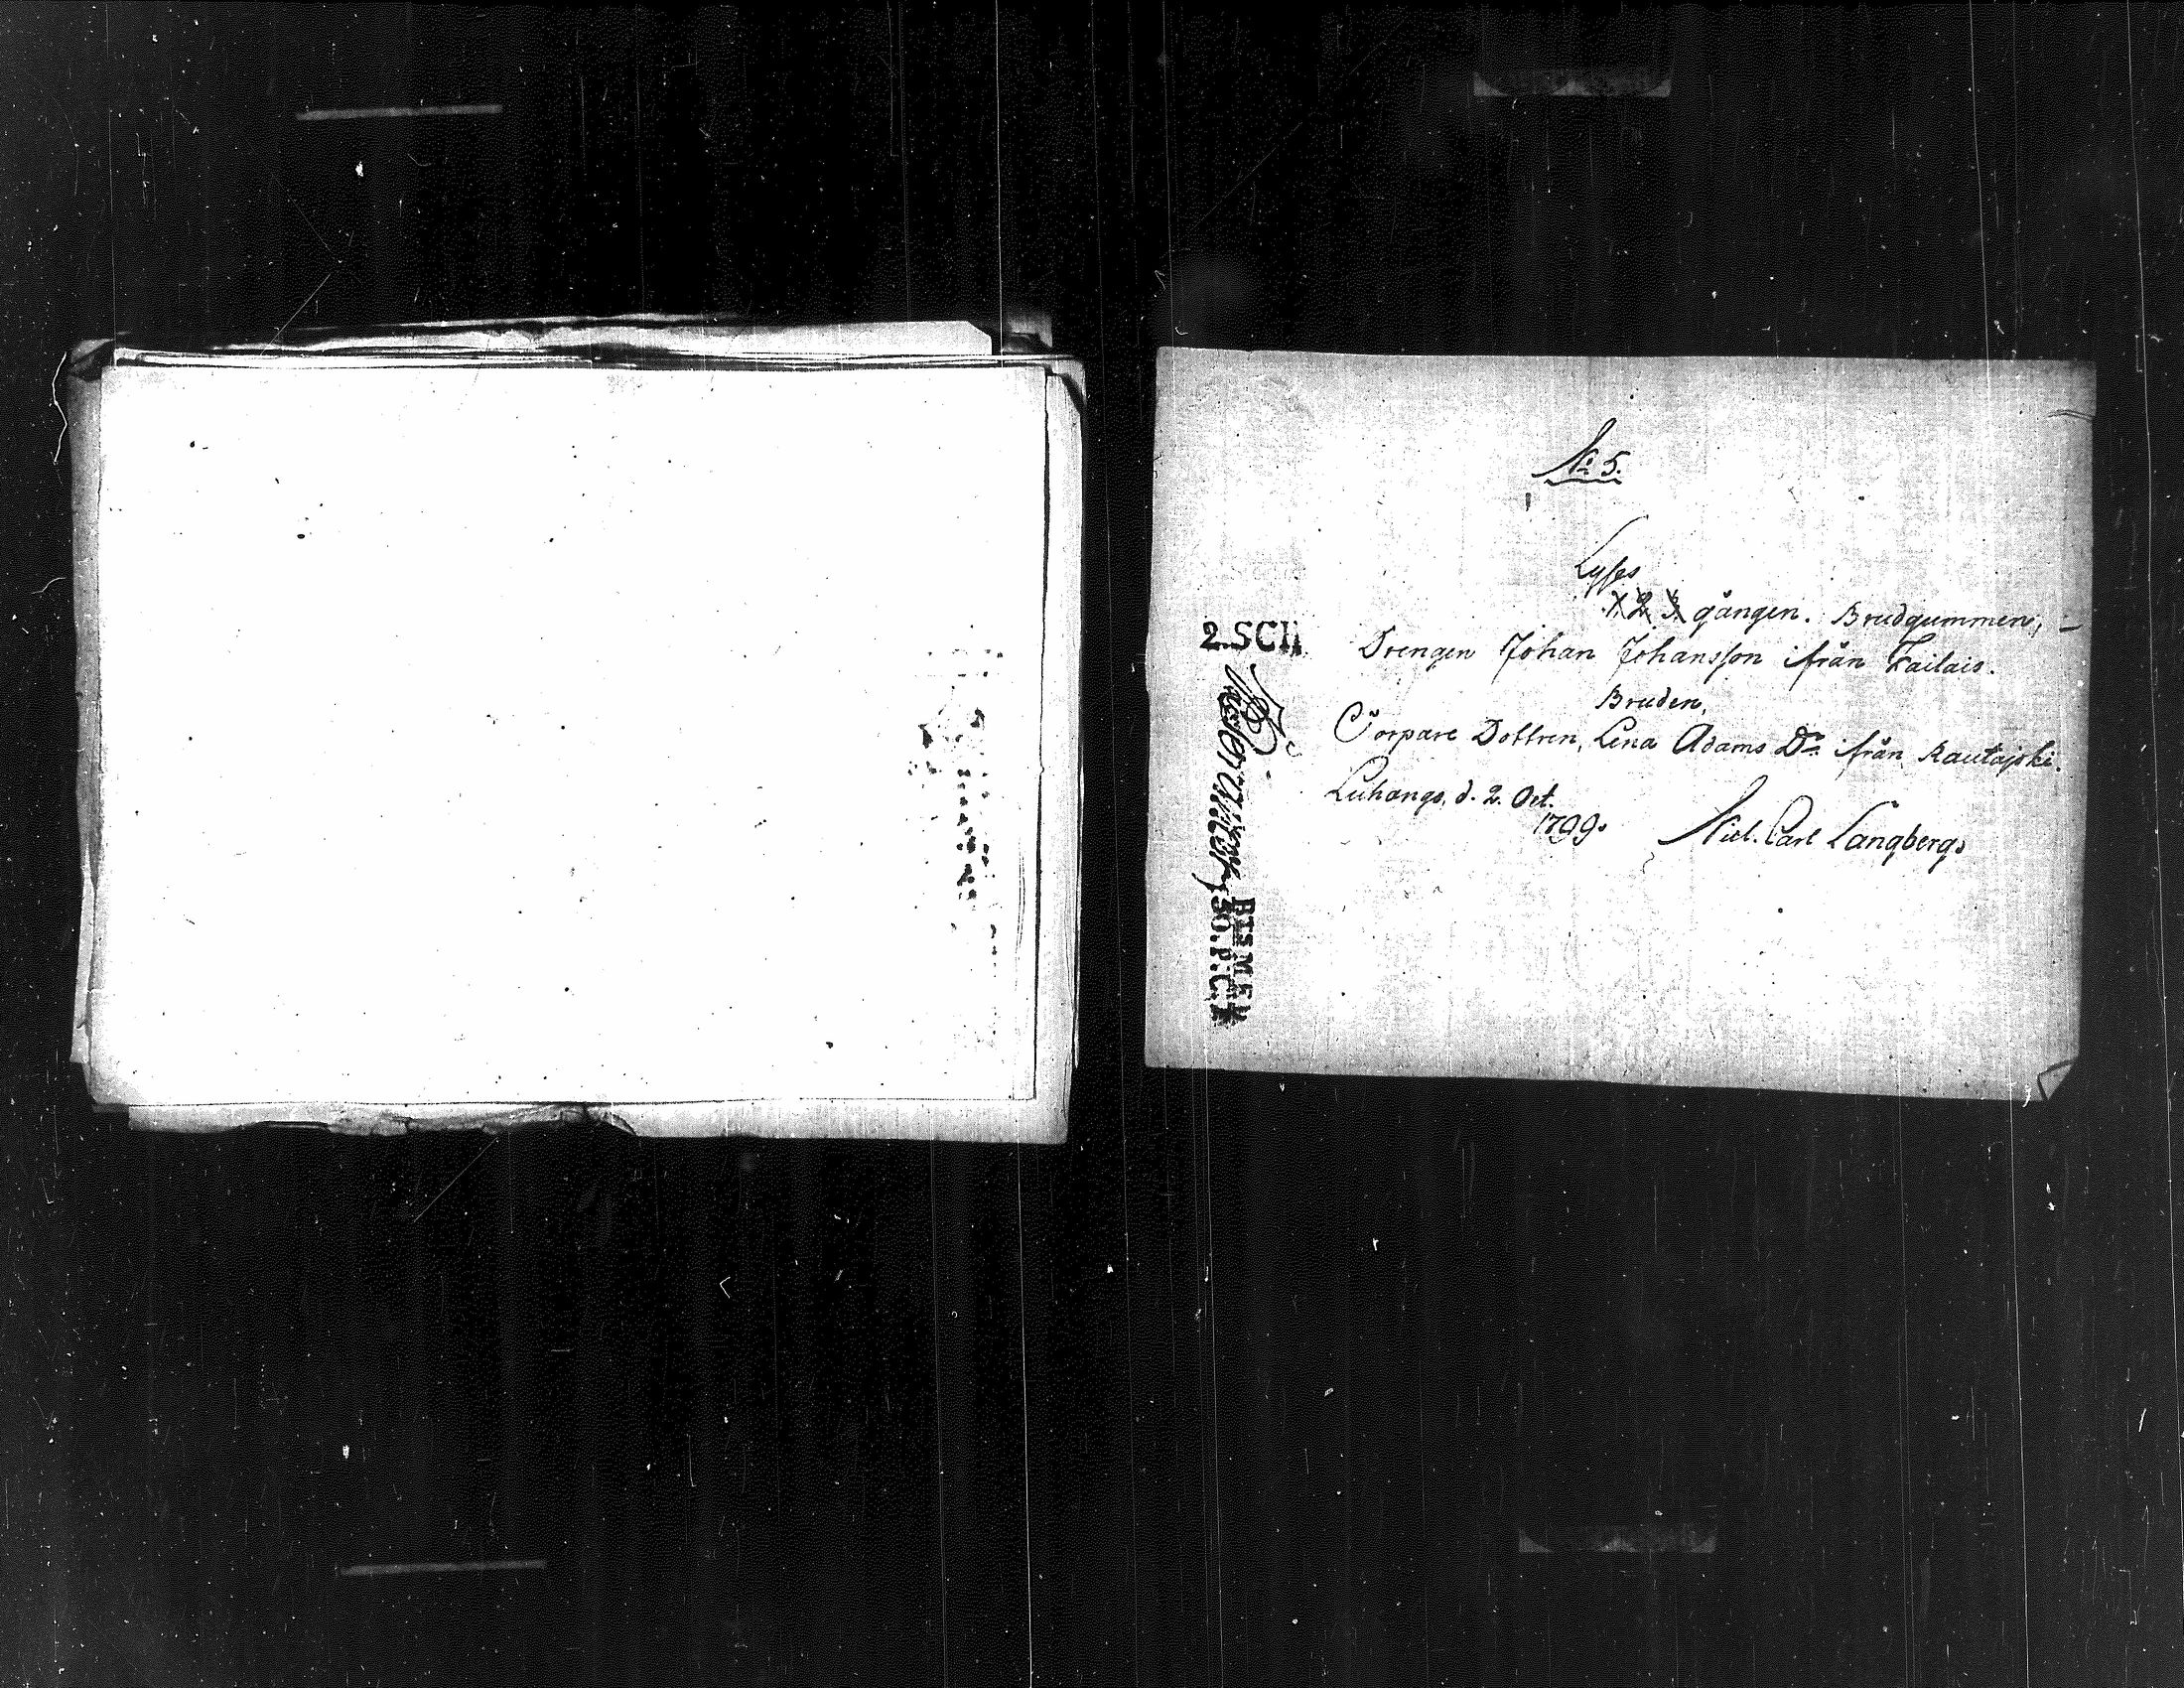 N:o 5.
Lyses
1. 2. 3. gången. Brudgummen, –
Drengen Johan Johansson ifrån Tailais.
Bruden,
Torpare Dottren, Lena Adams D:r ifrån Rautajoki.
Luhango, d. 2. Oct.
1799.
Nicl. Carl Langberg.
2.SCH
30.P:C: